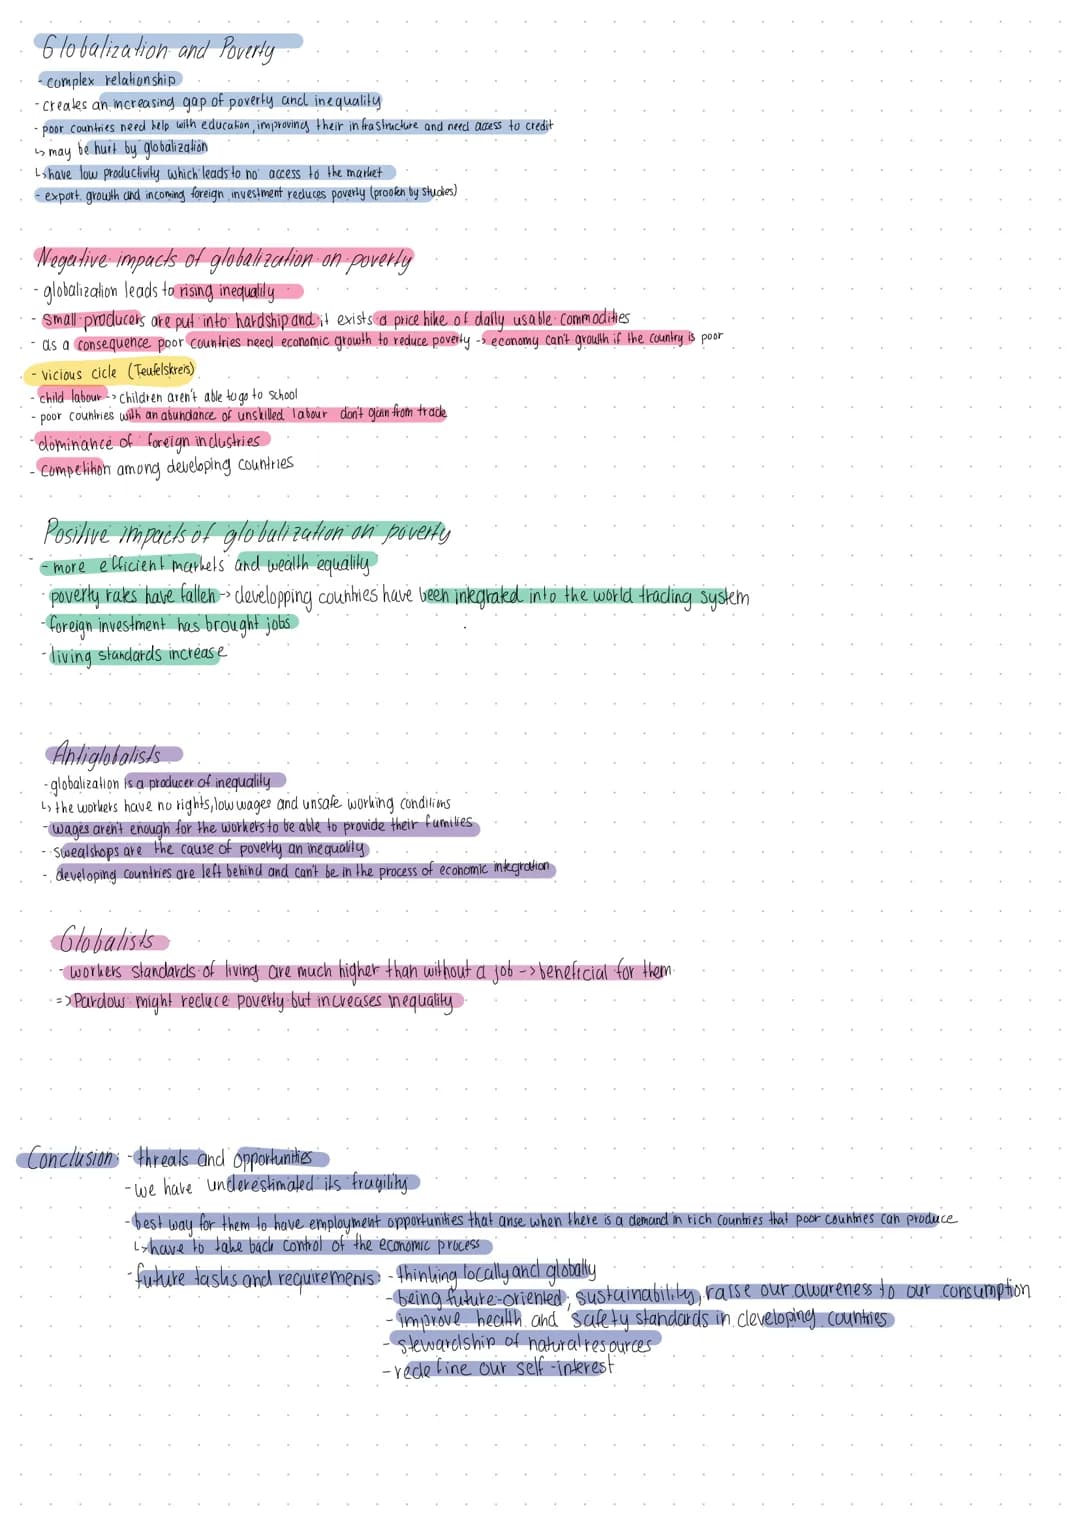 Globalization and Poverty
- complex relationship
- creates an increasing gap of poverty and inequality
- poor countries need help with education, improving their infrastructure and need access to credit
↳ may be hurt by globalization
↳ have low productivity which leads to no access to the market
- export growth and incoming foreign investment reduces poverty (proofen by studies)
Negative impacts of globalization on poverty
- globalization leads to rising inequality
- small producers are put into hardship and it exists a price hike of daily usable commodities
- as a consequence poor countries need economic growth to reduce poverty -> economy can't growth if the country is poor
- vicious cicle (Teufelskreis)
- child labour -> children aren't able to go to school
- poor countries with an abundance of unskilled labour don't gain from trade
- dominance of foreign industries
- competition among developing countries
Positive impacts of globalization on poverty
- more efficient markets and wealth equality
- poverty rates have fallen -> developping countries have been integrated into the world trading system
- foreign investment has brought jobs
- living standards increase
Antiglobalists
- globalization is a producer of inequality
↳ the workers have no rights, low wages and unsafe working conditions
- wages aren't enough for the workers to be able to provide their families
- sweatshops are the cause of poverty an inequality
- developing countries are left behind and can't be in the process of economic integration
Globalists
- workers standards of living are much higher than without a job -> beneficial for them
=> Pardow: might reduce poverty but increases inequality
Conclusion: - threats and opportunities
- we have underestimated its fragility
- best way for them to have employment opportunities that arise when there is a demand in rich countries that poor countries can produce
↳ have to take back control of the economic process
- future tasks and requirements: - thinking locally and globally
- being future-oriented, sustainability, raise our awareness to our consumption
- improve health and safety standards in developing countries
- stewardship of natural resources
- redefine our self-interest